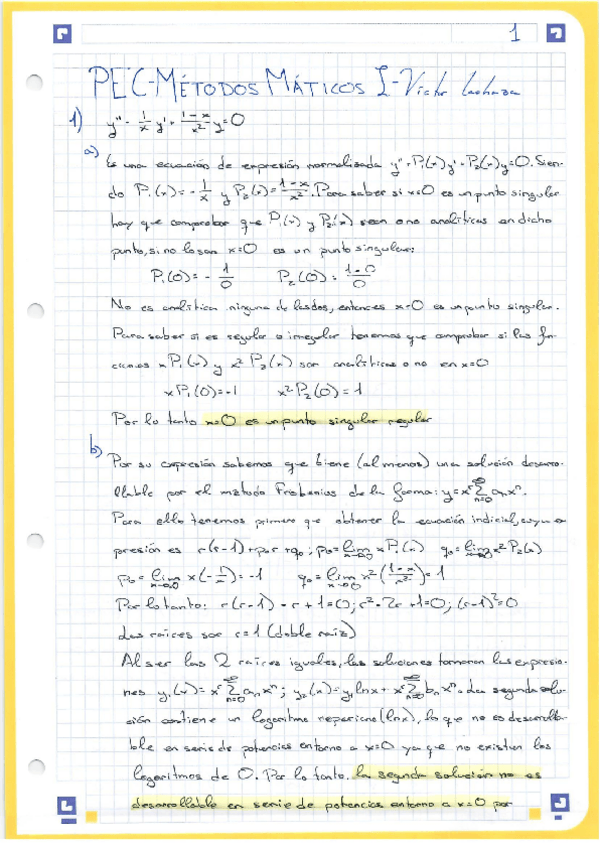 1
PEC-MÉTODOS MÁTICOS I-Victor
1) y'' - 1/x y' + (1-x)/x² y = 0
a) Es una ecuación de expresión normalizada y''+P₁(x)y'+P₂(x)y=0. Sien-
do P₁(x) = -1/x y P₂(x) = (1-x)/x². Para saber si x=0 es un punto singular
hay que comprobar que P₁(x) y P₂(x) sean o no analíticas en dicho
punto, si no lo son x=0 es un punto singular:
P₁(0) = -1/0 P₂(0) = (1-0)/0
No es analítica ninguna de las dos, entonces x=0 es un punto singular.
Para saber si es regular o irregular tenemos que comprobar si las fun-
ciones x P₁(x) y x² P₂(x) son analíticas o no en x=0
x P₁(0) = -1 x² P₂(0) = 1
Por lo tanto x=0 es un punto singular regular
b) Por su expresión sabemos que tiene (al menos) una solución desarro-
llable por el método Frobenius de la forma: y = xʳ ∑ₙ₌₀^∞ aₙxⁿ.
Para ello tenemos primero que obtener la ecuación indicial, cuya ex
presión es r(r-1)+p₀r+q₀; p₀ = lim x→0 x P₁(x) q₀ = lim x→0 x² P₂(x)
p₀ = lim x→0 x(-1/x) = -1 q₀ = lim x→0 x²((1-x)/x²) = 1
Por lo tanto: r(r-1) - r + 1 = 0; r² - 2r + 1 = 0; (r-1)² = 0
Las raíces son r=1 (doble raíz)
Al ser las 2 raíces iguales, las soluciones tomaran las expresio-
nes y₁(x) = xʳ ∑ₙ₌₀^∞ aₙxⁿ; y₂(x) = y₁ lnx + xʳ ∑ₙ₌₀^∞ bₙxⁿ. La segunda solu-
ción contiene un logaritmo neperiano (lnx), lo que no es desarrolla-
ble en serie de potencias entorno a x=0 ya que no existen los
logaritmos de 0. Por lo tanto, la segunda solución no es
desarrollable en serie de potencias entorno a x=0 por